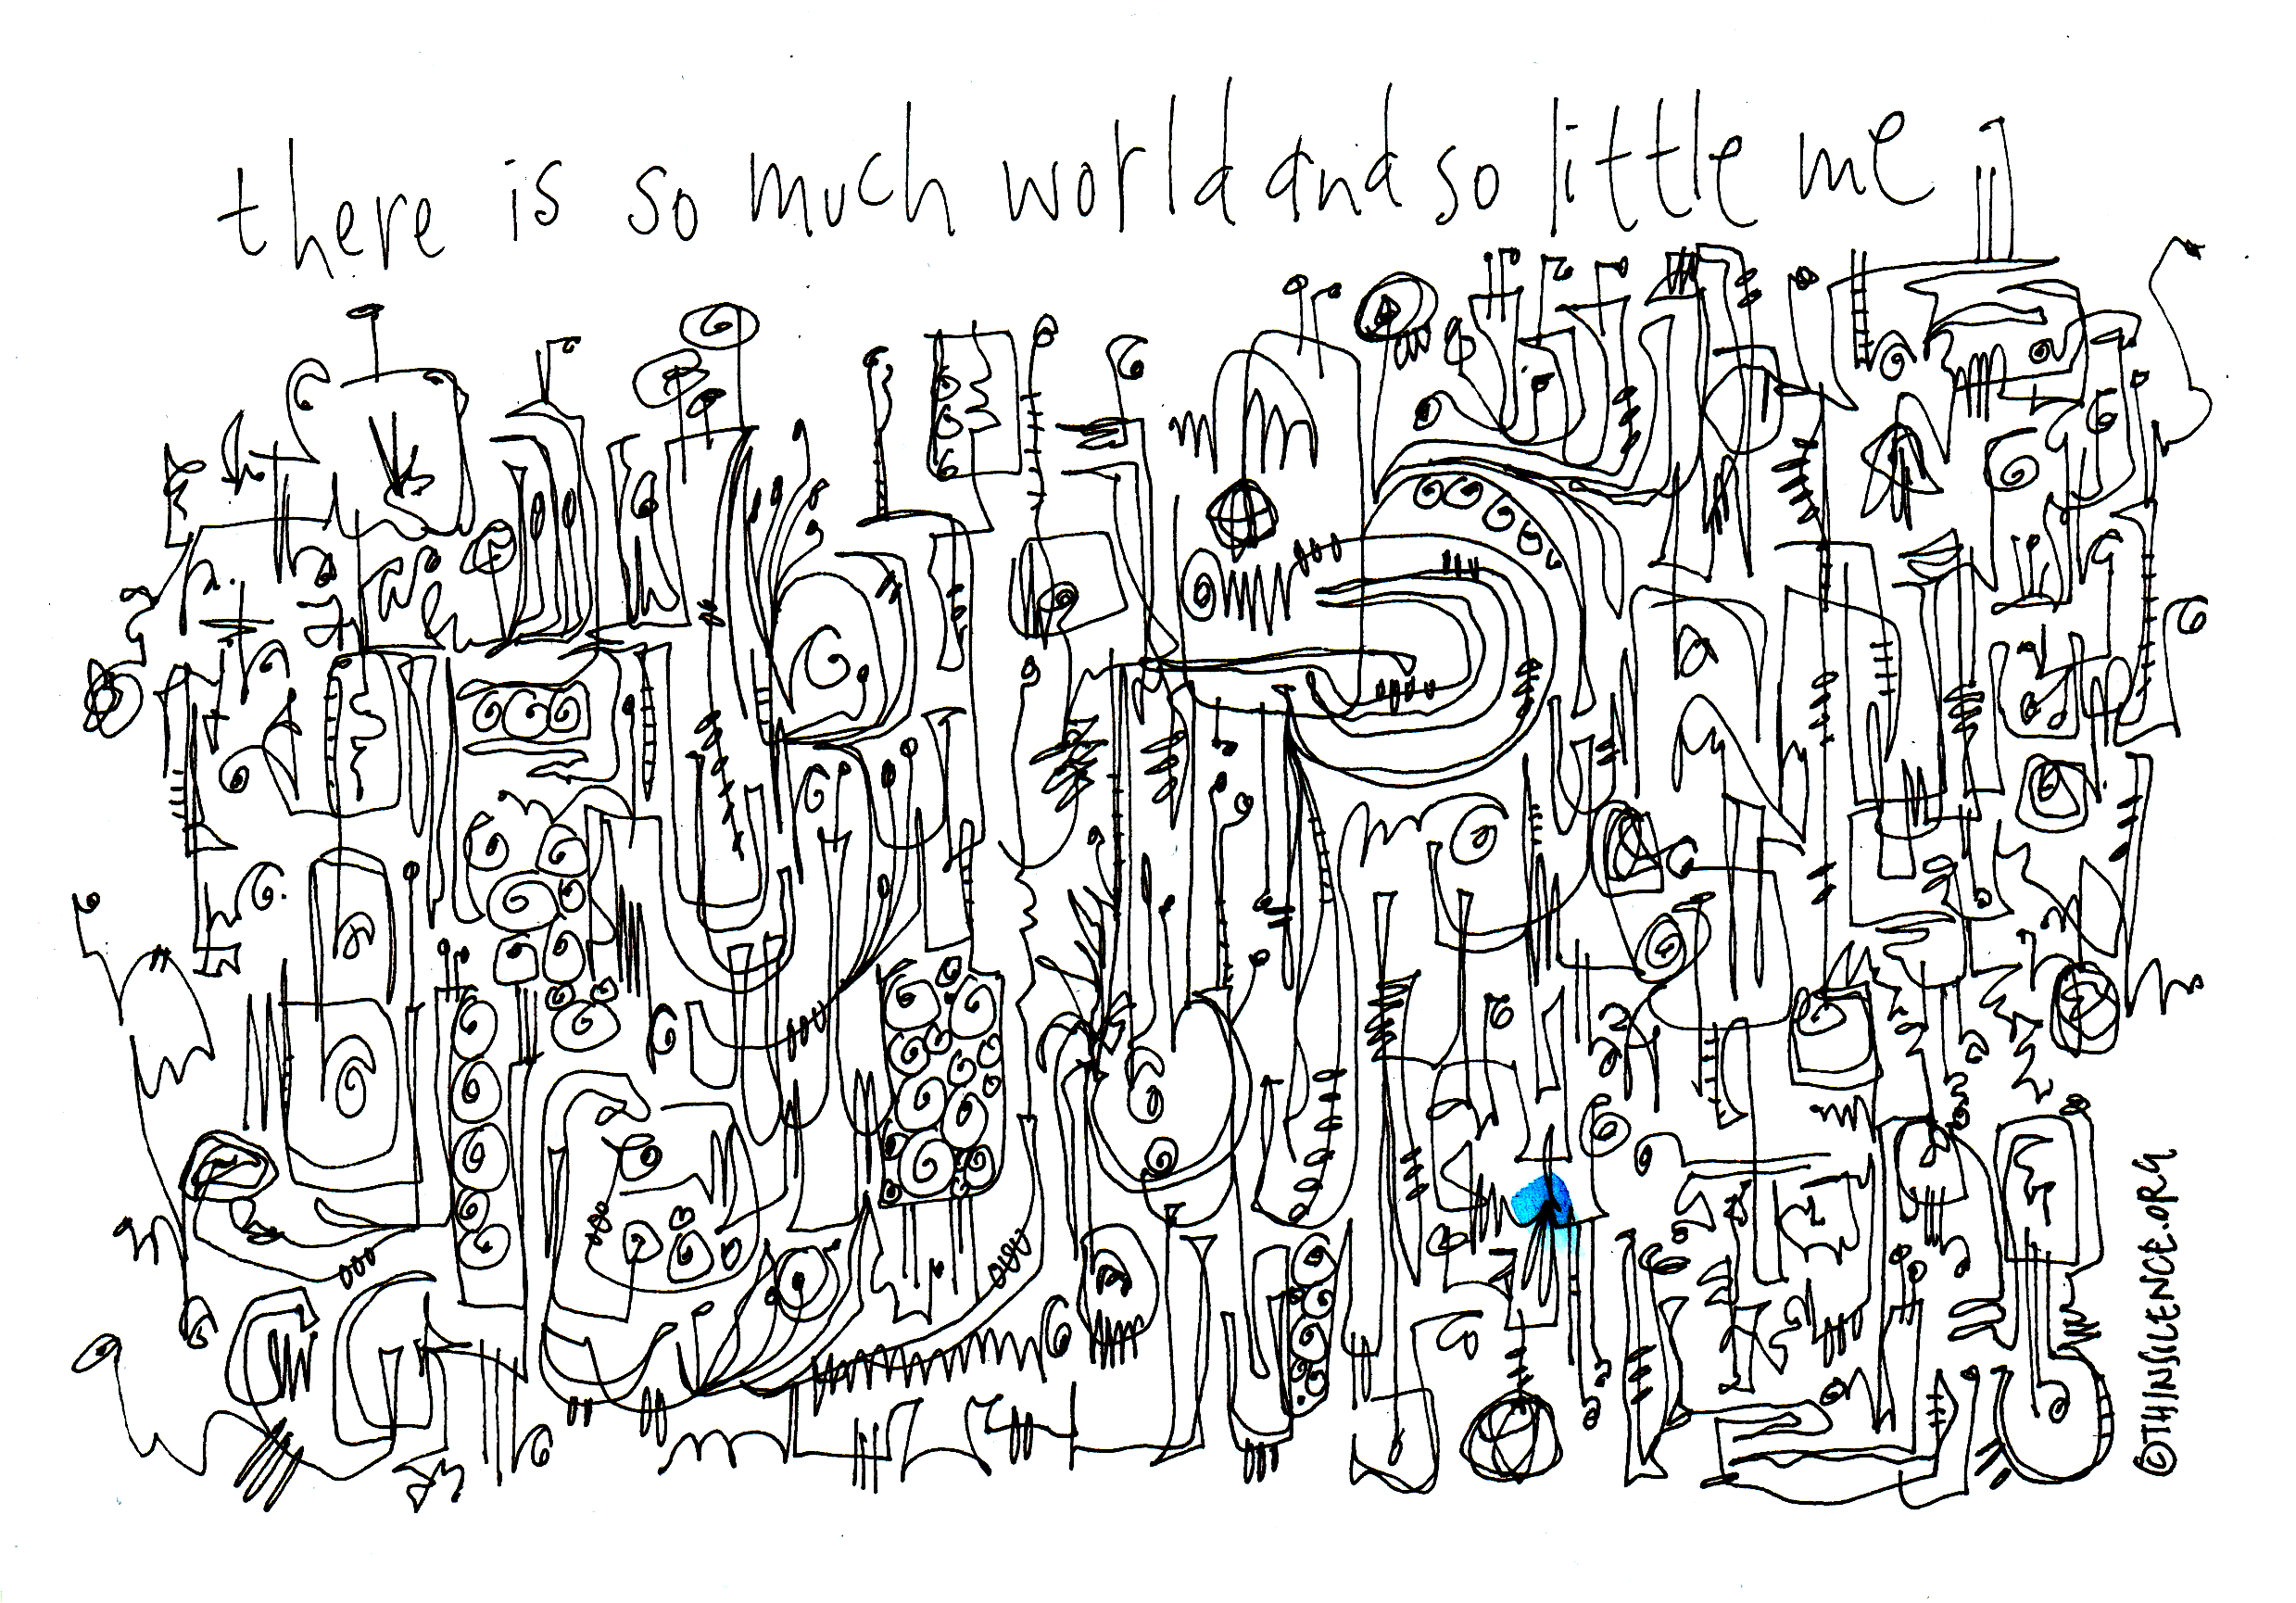 there is so much world and so little me
©THINSILENCE.ORG